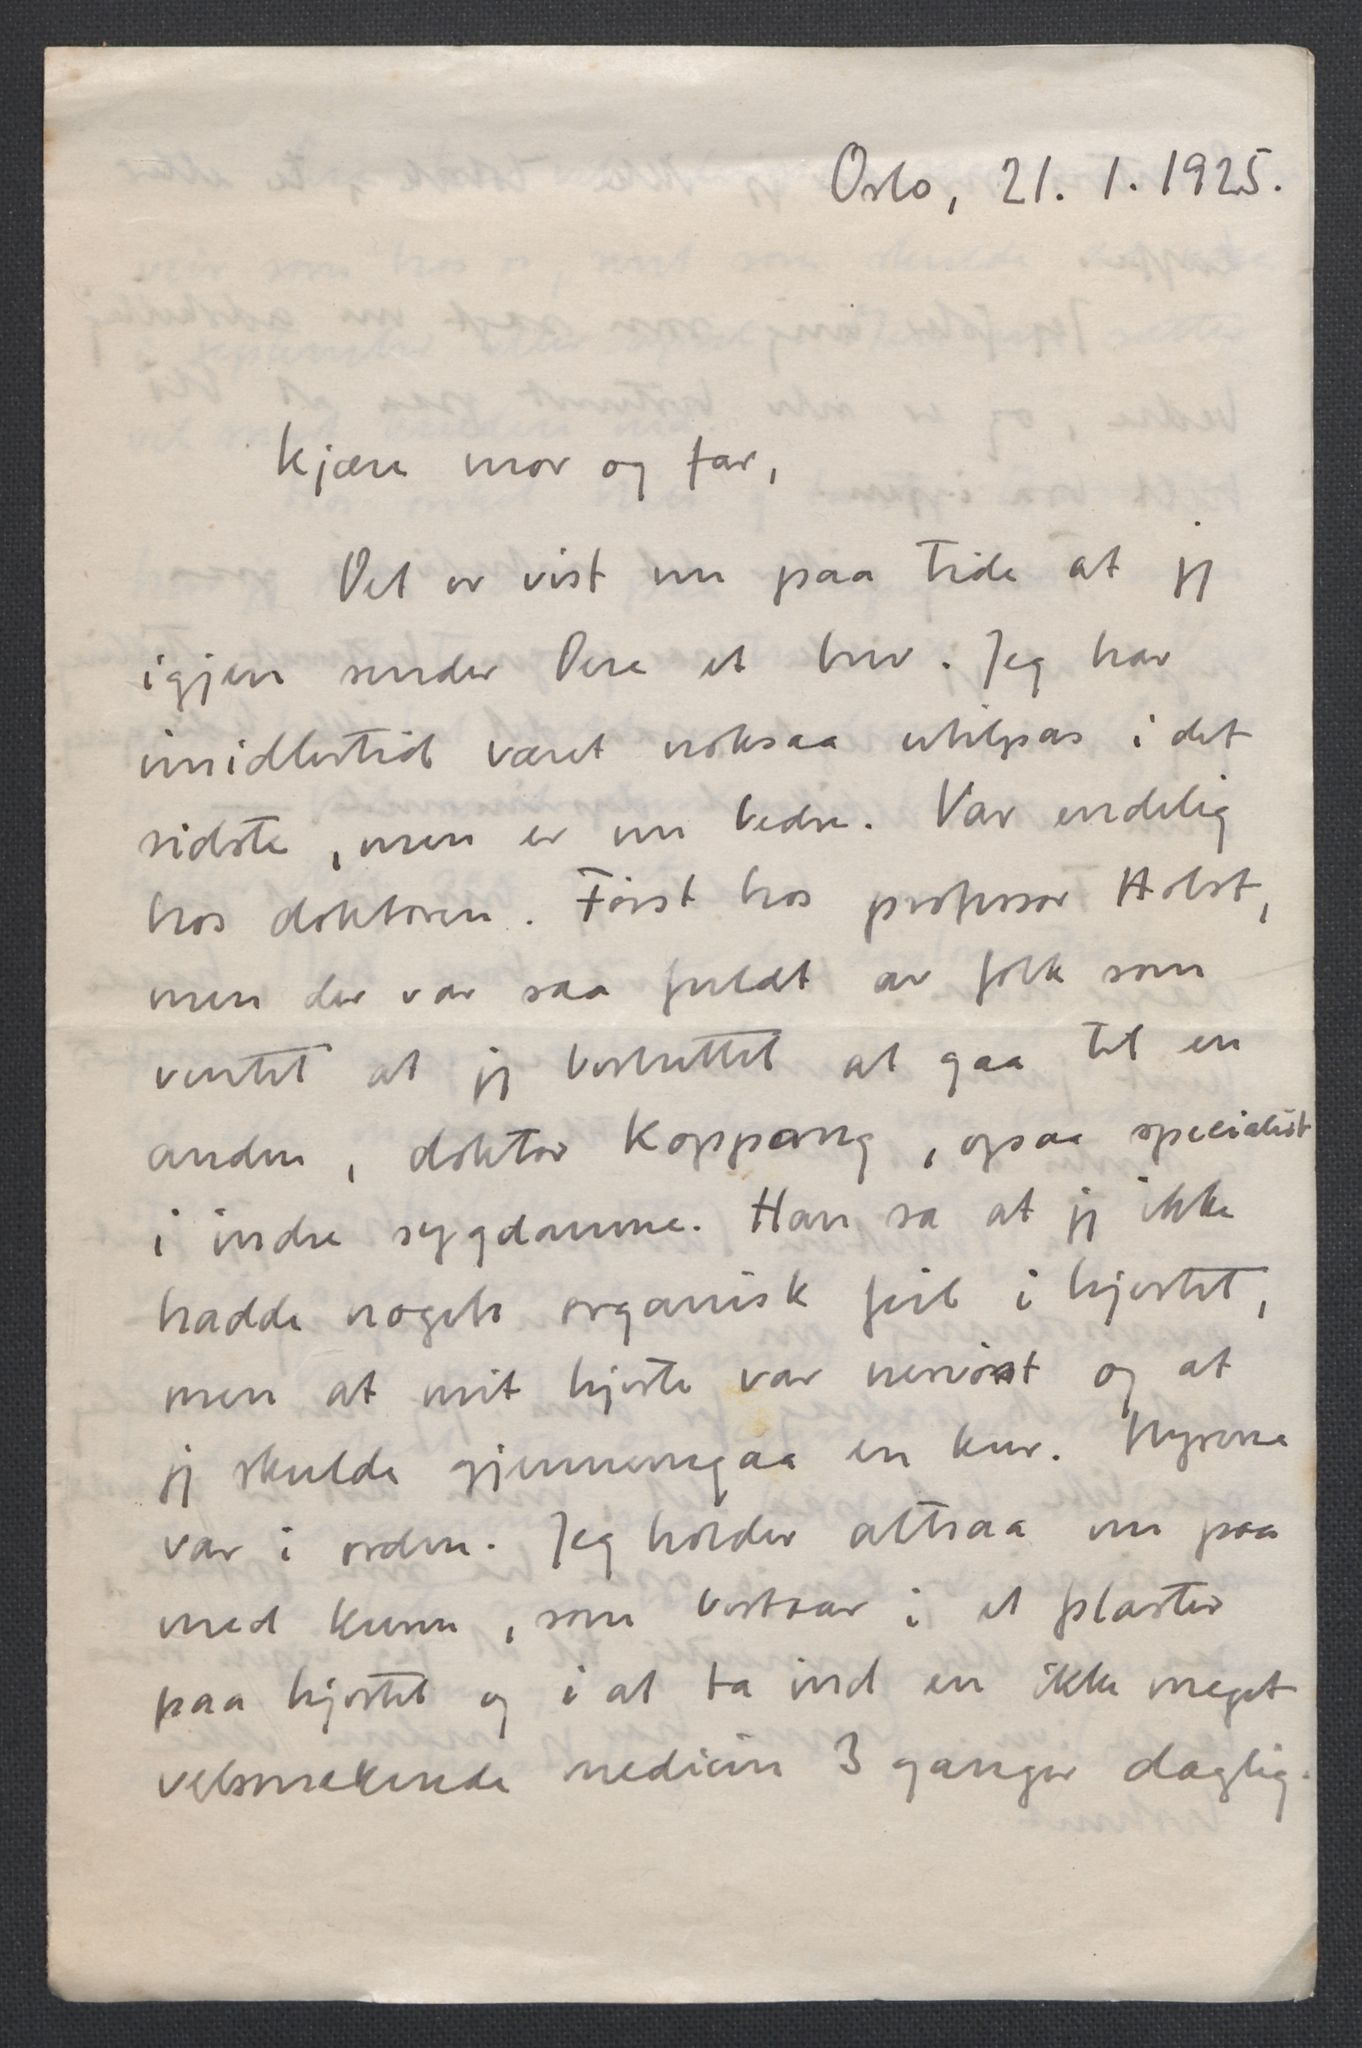 Oslo, 21. 1. 1925.
Kjære mor og far,
Det er vist nu paa tide at jeg
igjen sender Dere et brev. Jeg har
imidlertid været noksaa utilpas i det
sidste, men er nu bedre. Var endelig
hos doktoren. Først hos professor Holst,
men der var saa fuldt av folk som
ventet at jeg besluttet at gaa til en
anden, doktor Koppang, ogsaa specialist
i indre sygdomme. Han sa at jeg ikke
hadde nogen organisk feil i hjertet,
men at mit hjerte var nervøst og at
jeg skulde gjennemgaa en kur. Nyrene
var i orden. Jeg holder altsaa nu paa
med kuren, som bestaar i et plaster
paa hjertet og i at ta ind en ikke meget
velsmakende medicin 3 ganger daglig.